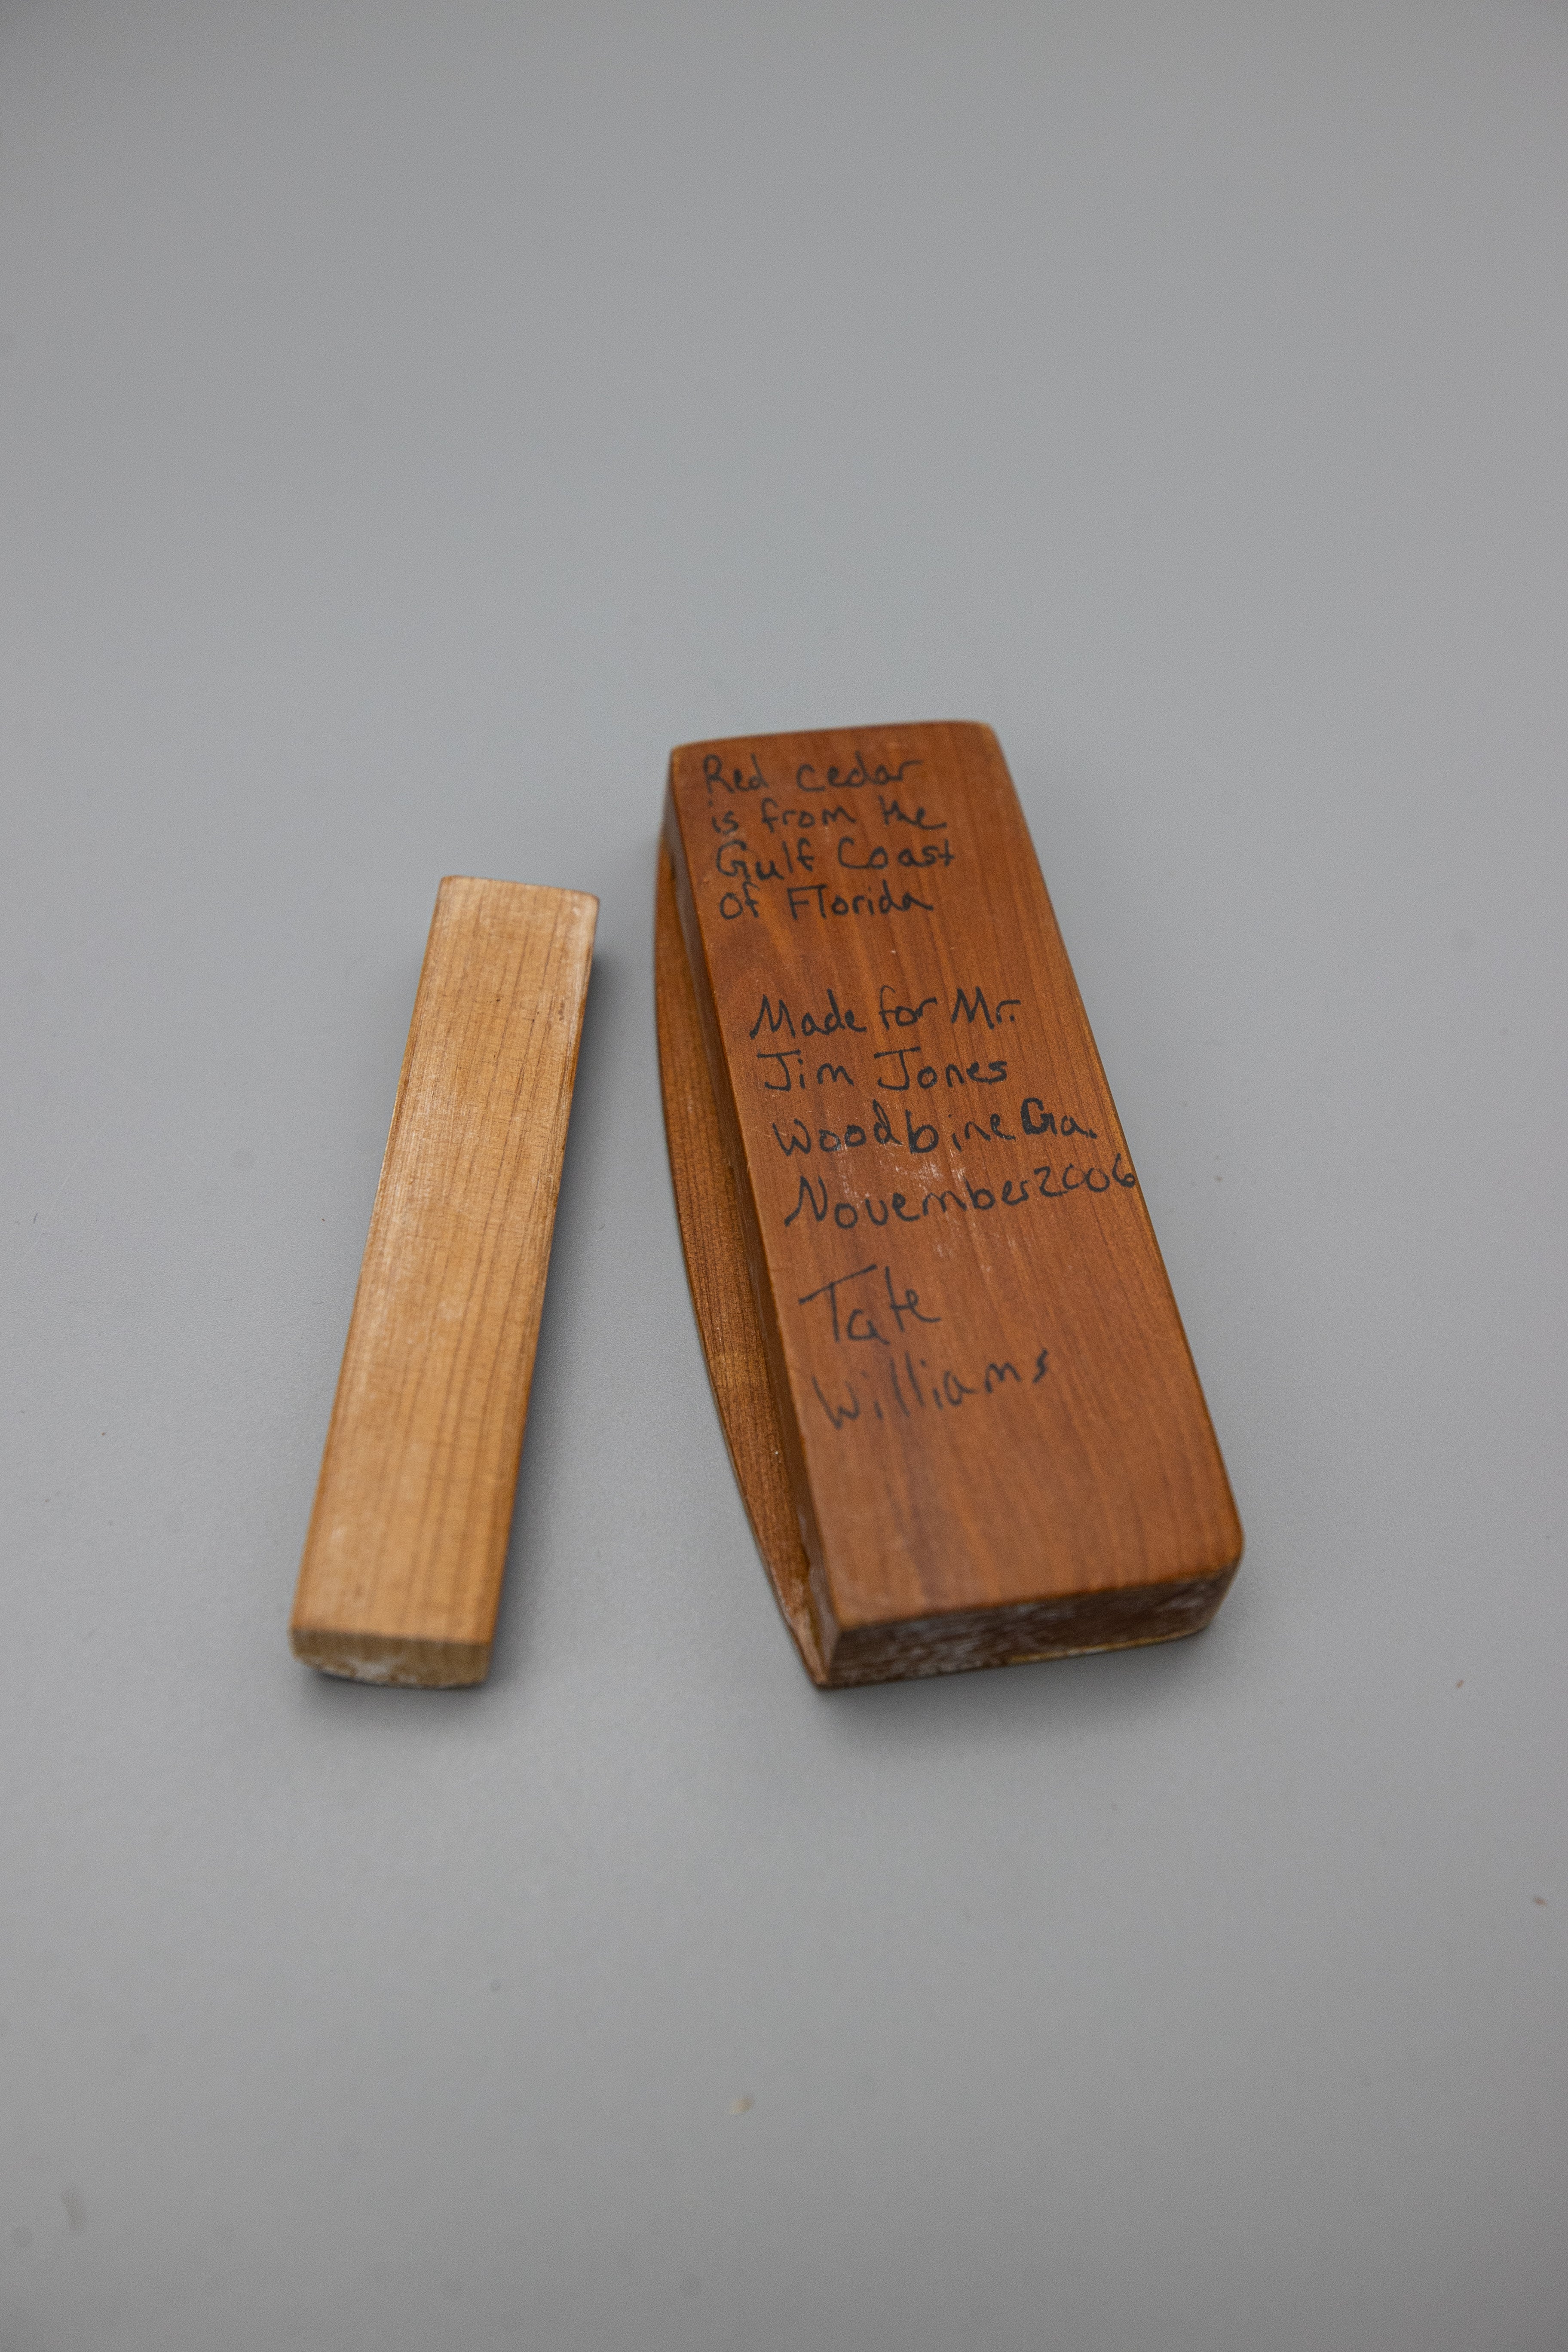 Red cedar
is from the
Gulf Coast
of Florida
Made for Mr.
Jim Jones
Woodbine Ga.
November 2006
Tate
Williams